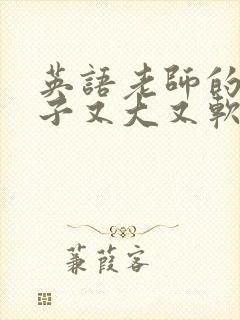 英語老師的
子又大又軟
蒹葭客